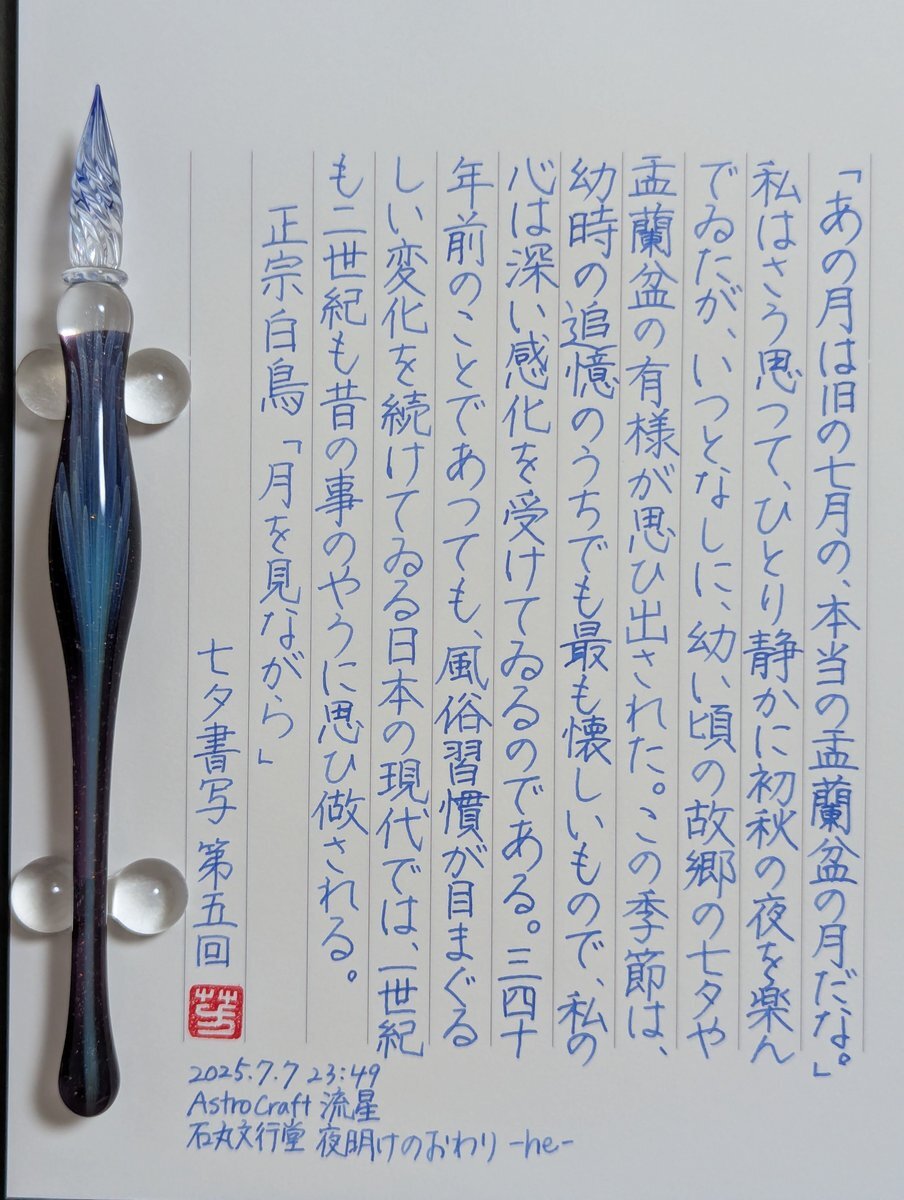 「あの月は旧の七月の、本当の盂蘭盆の月だな。」
私はさう思つて、ひとり静かに初秋の夜を楽ん
でゐたが、いつとなしに、幼い頃の故郷の七夕や
盂蘭盆の有様が思ひ出された。この季節は、
幼時の追憶のうちでも最も懐しいもので、私の
心は深い感化を受けてゐるのである。三四十
年前のことであつても、風俗習慣が目まぐる
しい変化を続けてゐる日本の現代では、一世紀
も二世紀も昔の事のやうに思ひ做される。
正宗白鳥「月を見ながら」
七夕書写 第五回
2025.7.7 23:49
AstroCraft 流星
石丸文行堂 夜明けのおわり -he-